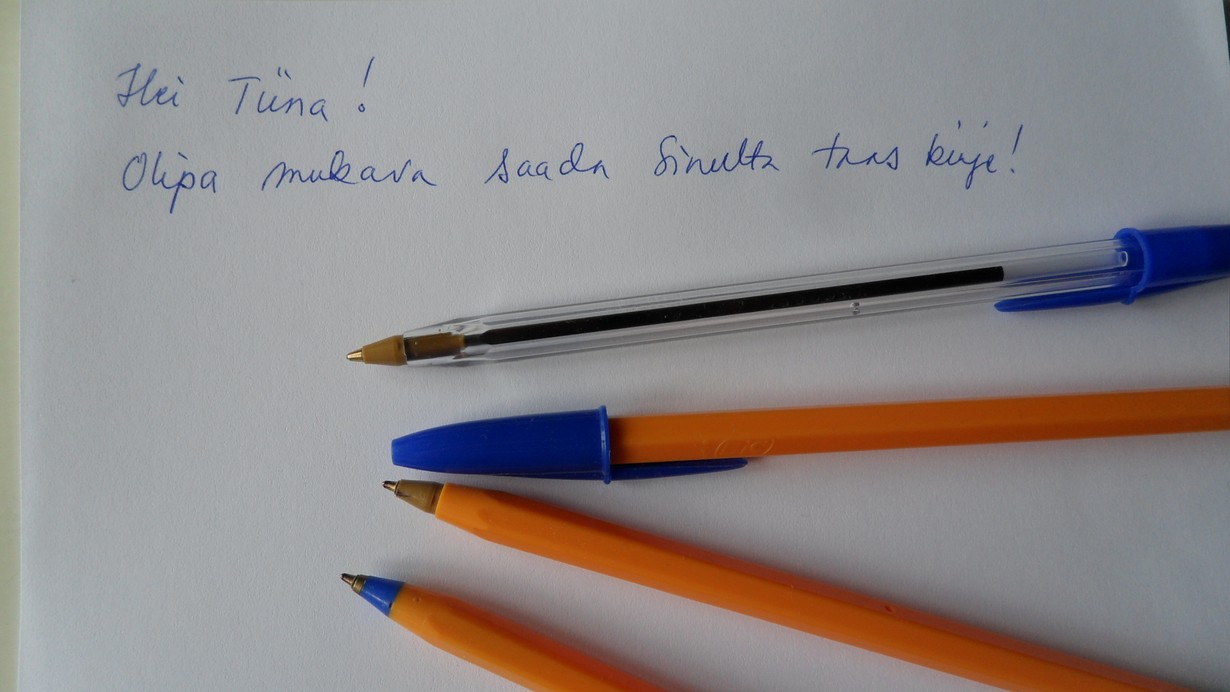 Hei Tiina!
Olipa mukava saada Sinulta taas kirje!